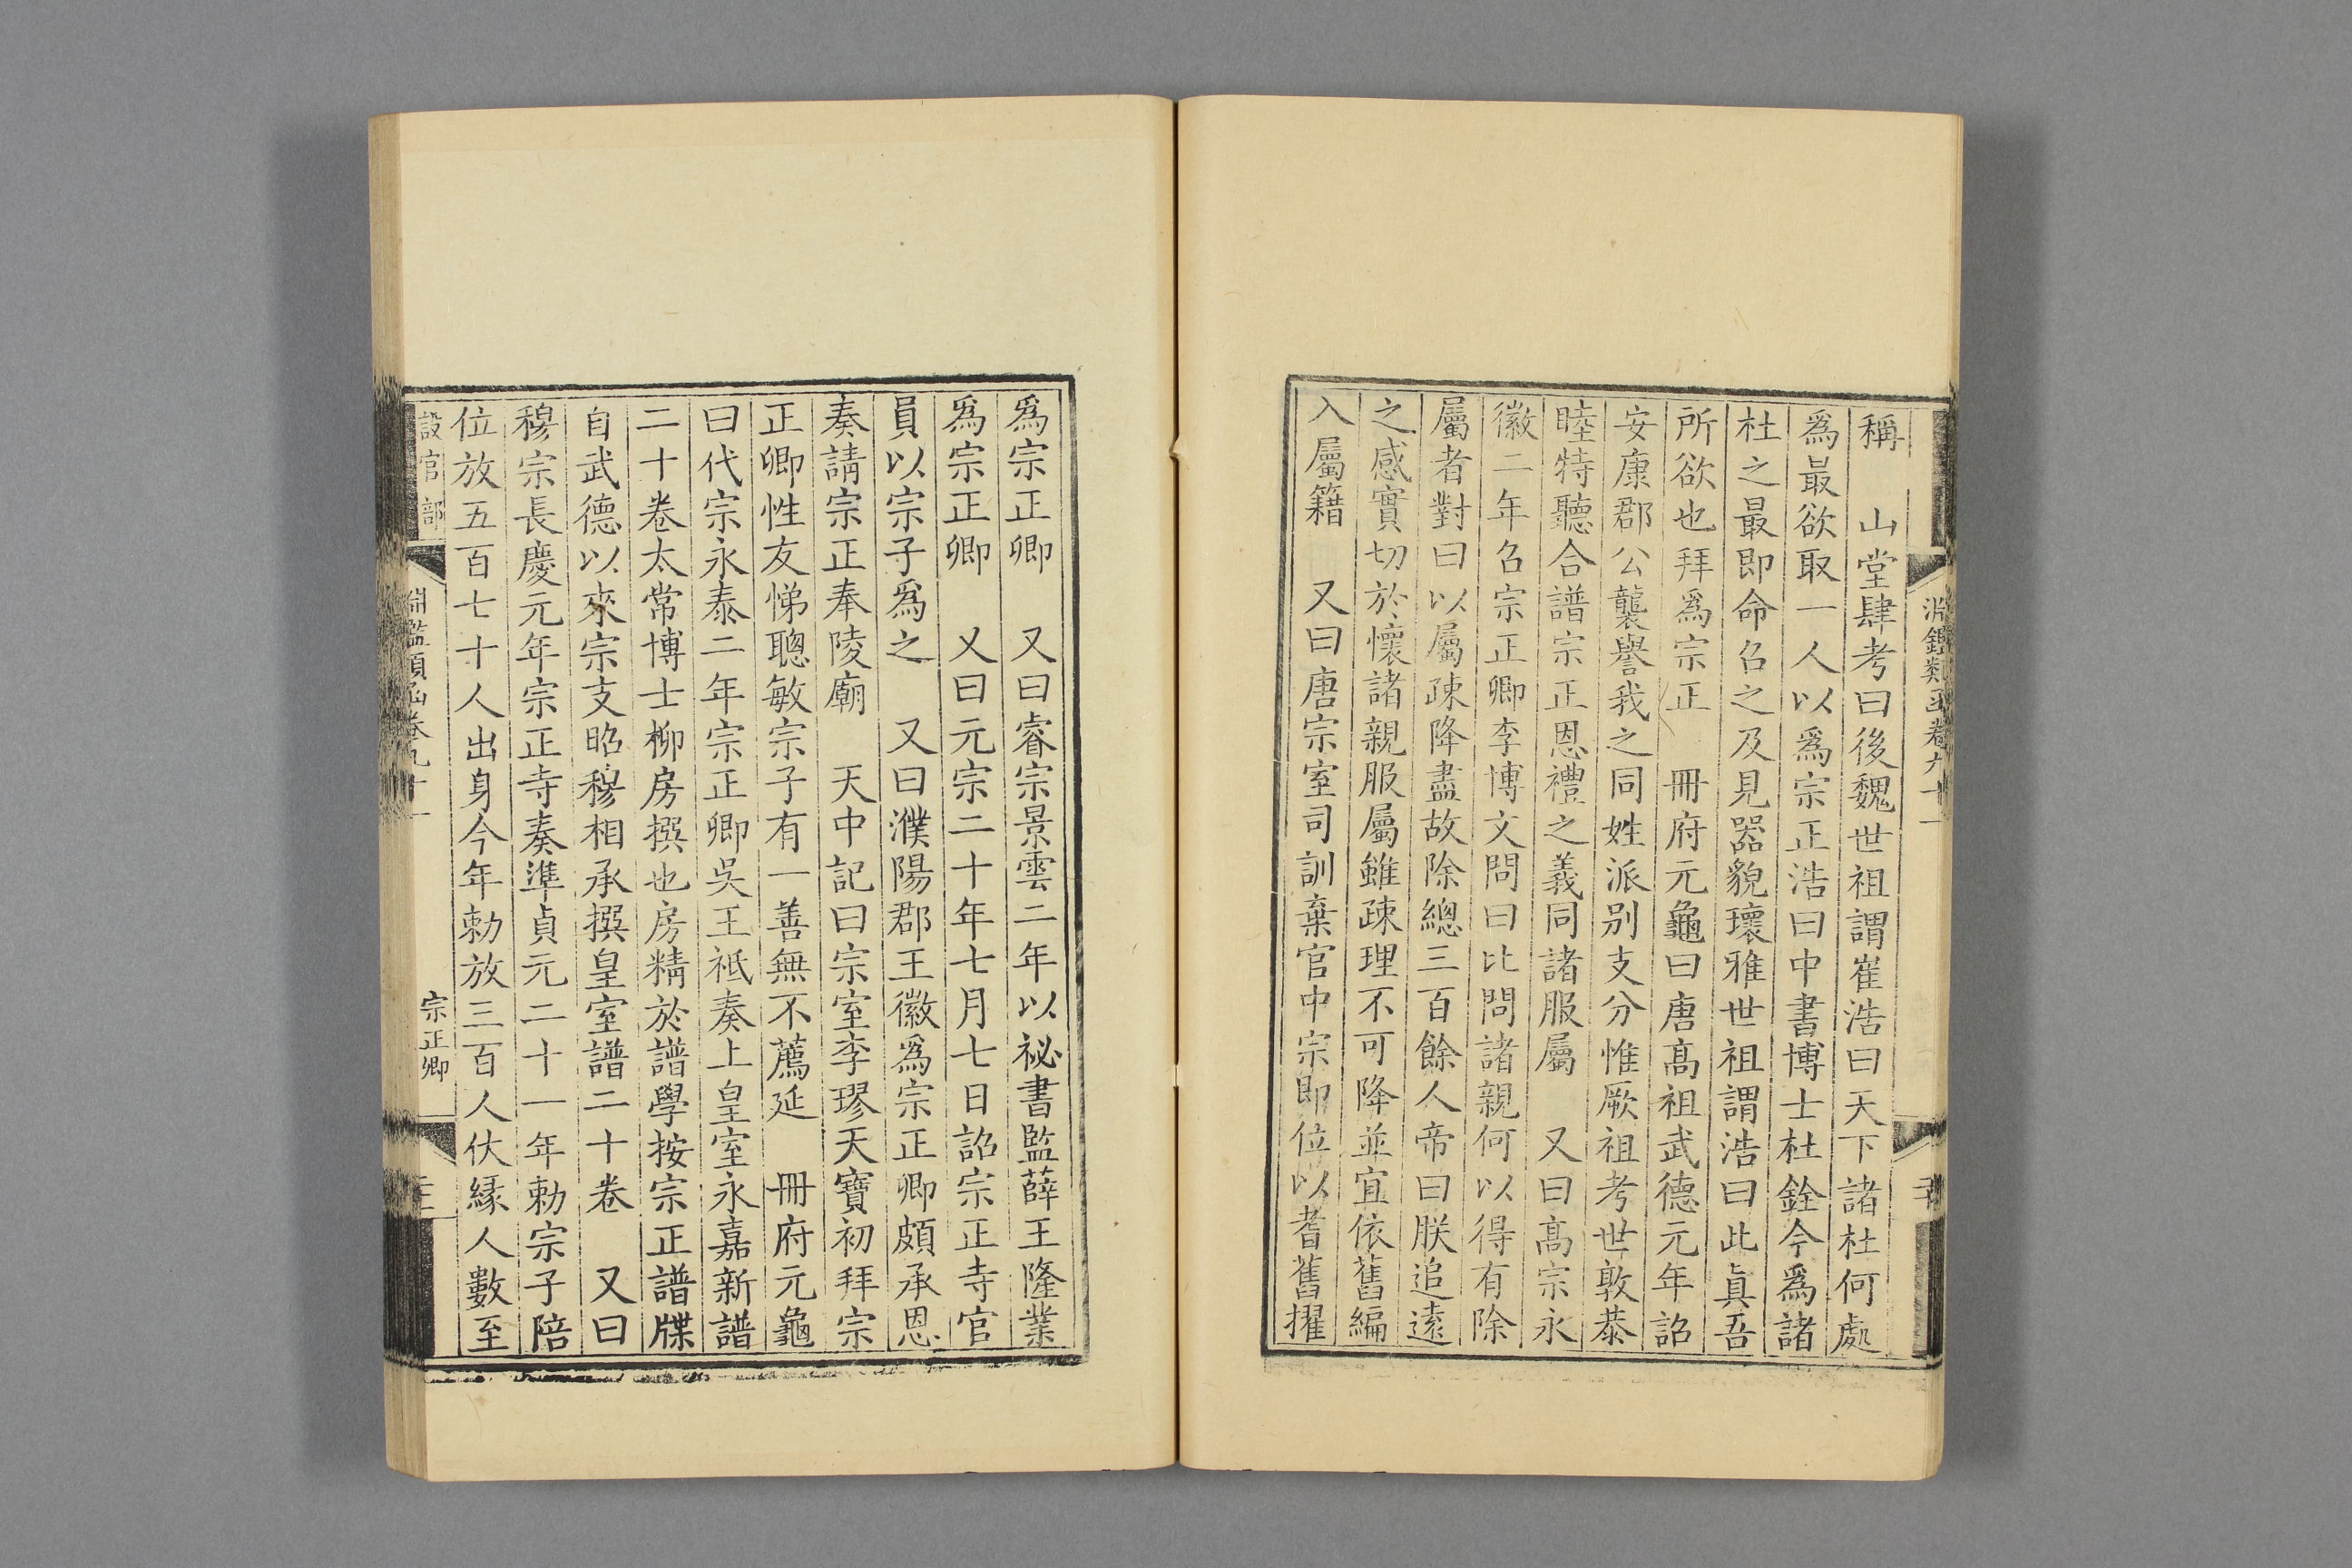 淵鑑類函卷九十一
稱　山堂肆考曰後魏世祖謂崔浩曰天下諸杜何處
爲最欲取一人以爲宗正浩曰中書博士杜銓今爲諸
杜之最即命召之及見器貌瓌雅世祖謂浩曰此真吾
所欲也拜爲宗正　冊府元龜曰唐高祖武德元年詔
安康郡公襲譽我之同姓派别支分惟厥祖考世敦恭
睦特聽合譜宗正恩禮之義同諸服屬　又曰高宗永
徽二年召宗正卿李博文問曰比問諸親何以得有除
屬者對曰以屬疎降盡故除總三百餘人帝曰朕追遠
之感實切於懷諸親服屬雖疎理不可降並宜依舊編
入屬籍　又曰唐宗室司訓棄官中宗即位以耆舊擢
爲宗正卿　又曰睿宗景雲二年以祕書監薛王隆業
爲宗正卿　又曰元宗二十年七月七日詔宗正寺官
員以宗子爲之　又曰濮陽郡王徽爲宗正卿頗承恩
奏請宗正奉陵廟　天中記曰宗室李璆天寶初拜宗
正卿性友悌聰敏宗子有一善無不薦延　冊府元龜
曰代宗永泰二年宗正卿吳王祗奏上皇室永嘉新譜
二十卷太常博士柳房撰也房精於譜學按宗正譜牒
自武德以來宗支昭穆相承撰皇室譜二十卷　又曰
穆宗長慶元年宗正寺奏準貞元二十一年勅宗子陪
位放五百七十人出身今年勅放三百人伏縁人數至
設官部　淵鑑類函卷九十一　宗正卿